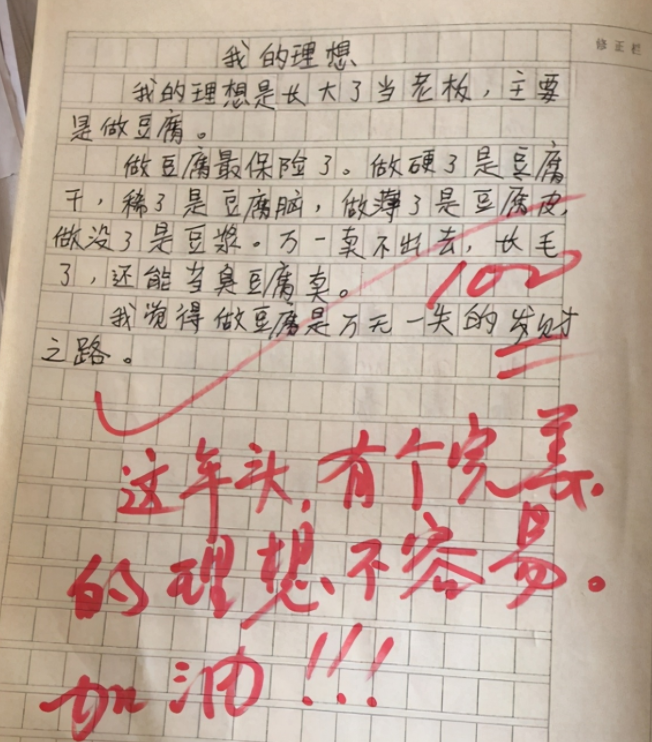 修正栏
我的理想
我的理想是长大了当老板，主要
是做豆腐。
做豆腐最保险了。做硬了是豆腐
干，稀了是豆腐脑，做薄了是豆腐皮，
做没了是豆浆。万一卖不出去，长毛
了，还能当臭豆腐卖。
100
我觉得做豆腐是万无一失的发财
之路。
这年头，有个完美
的理想不容易。
加油！！！